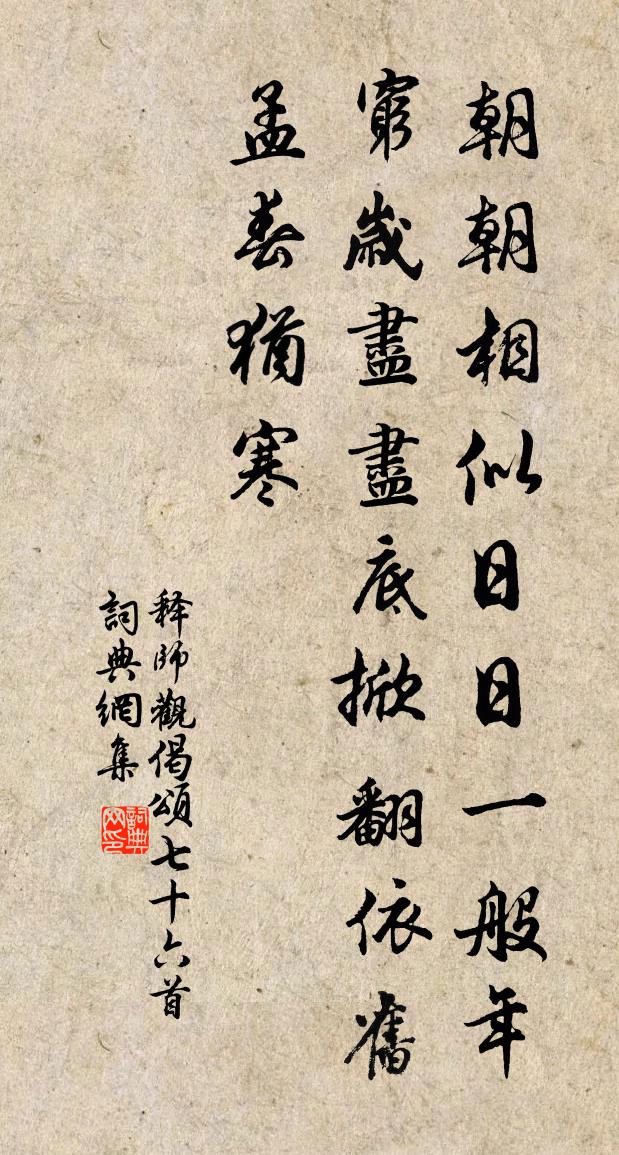 朝朝相似日日一般年
窮歲盡盡底掀翻依舊
孟春猶寒
释師觀偈頌七十六首
詞典網集
詞典網印